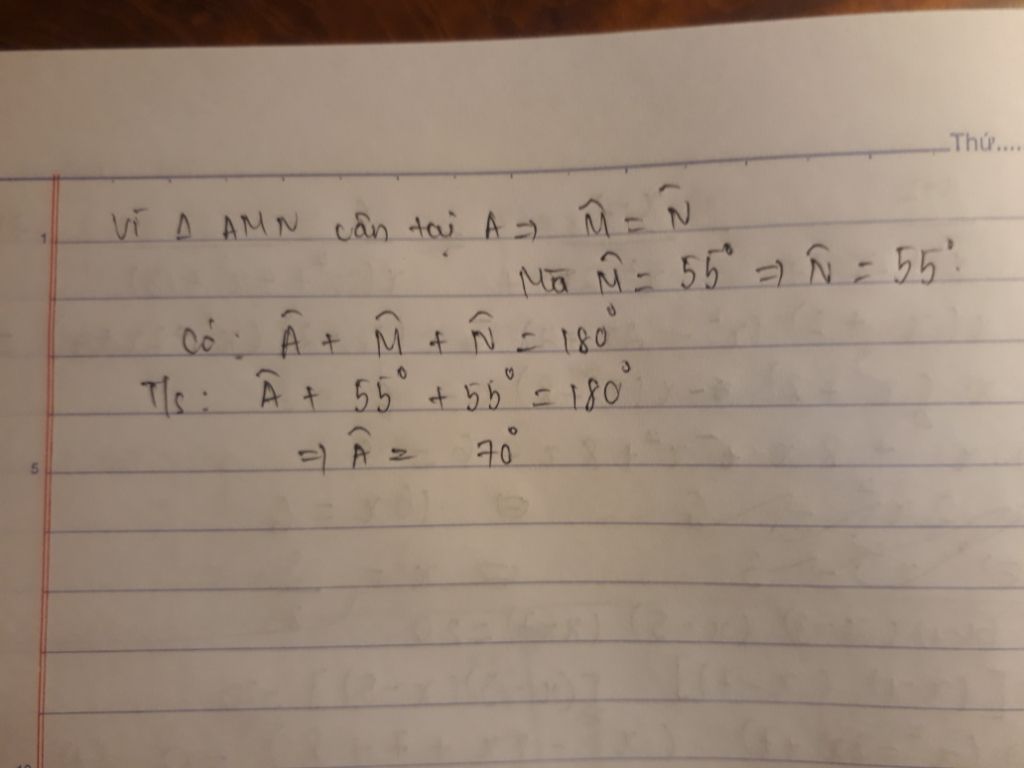 Thứ....
1 Vì Δ AMN cân tại A => M̂ = N̂
Mà M̂ = 55° => N̂ = 55°.
Có: Â + M̂ + N̂ = 180°
T/s: Â + 55° + 55° = 180°
5 => Â = 70°